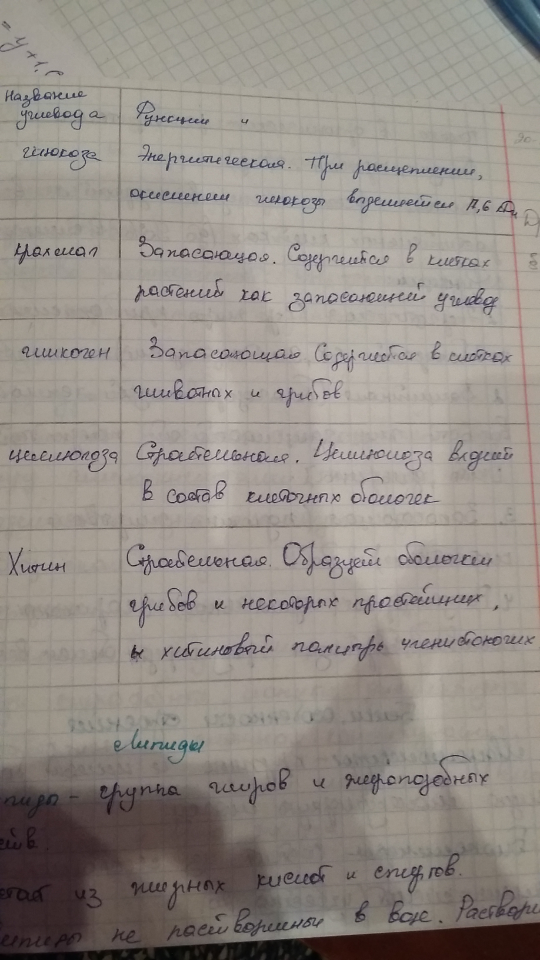 = y + 1.
Название
углевода
Функции и
глюкоза
Энергетическая. При расщеплении,
окислении глюкозы выделяется 17,6 Дж
крахмал
Запасающая. Содержится в клетках
растений как запасающий углевод
гликоген
Запасающая. Содержится в клетках
животных и грибов
целлюлоза
Строительная. Целлюлоза входит
в состав клеточных оболочек
Хитин
Строительная. Образует оболочки
грибов и некоторых простейших,
и хитиновый панцирь членистоногих
Липиды
пиды - группа жиров и жироподобных
ств.
стоят из жирных кислот и спиртов.
Липиды не растворимы в воде. Раствори